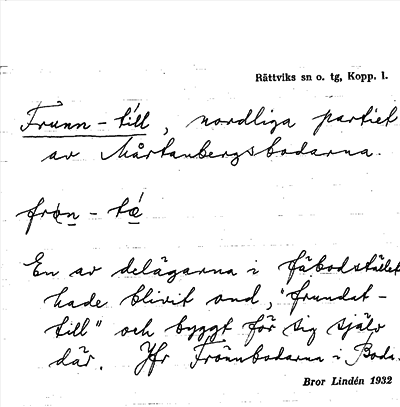 Rättviks sn o. tg, Kopp. l.
Frunn-till, nordliga partiet
av Mårtanbergsbodarna.
frøn-tǽ
En av delägarna i fäbodstället
hade blivit ond, "frundat-
till" och byggt för sig själv
där. Jfr Frönnbodarna i Boda.
Bror Lindén 1932